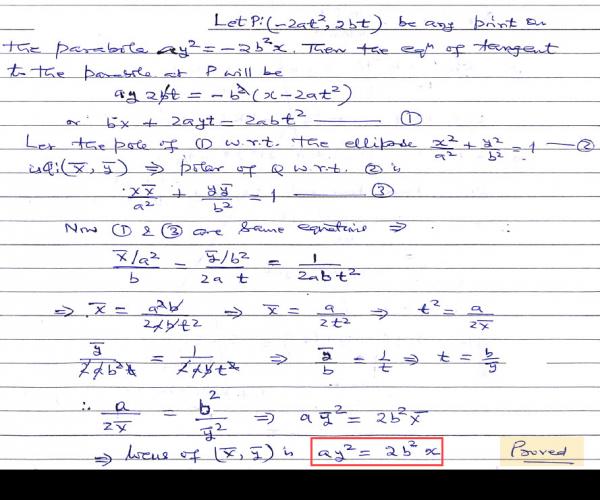 Let P:(-2at², 2bt) be any print on
the parabola ay² = -2b²x. Then the eqⁿ of tangent
to the parabola at P will be
ay 2bt = -b²(x-2at²)
or bx + 2ayt = 2abt² ——— ①
Let the pole of ① w.r.t. the ellipse x²/a² + y²/b² = 1 — ②
is Q:(x̄, ȳ) ⇒ polar of Q w.r.t. ② is
xx̄/a² + yȳ/b² = 1 ——— ③
Now ① & ③ are same equations ⇒
x̄/a² / b = ȳ/b² / 2at = 1 / 2abt²
⇒ x̄ = a²b / 2abt² ⇒ x̄ = a/2t² ⇒ t² = a/2x̄
ȳ / 2ab²t = 1 / 2abt² ⇒ ȳ/b = 1/t ⇒ t = b/ȳ
∴ a/2x̄ = b²/ȳ² ⇒ aȳ² = 2b²x̄
⇒ locus of (x̄, ȳ) is ay² = 2b²x Proved